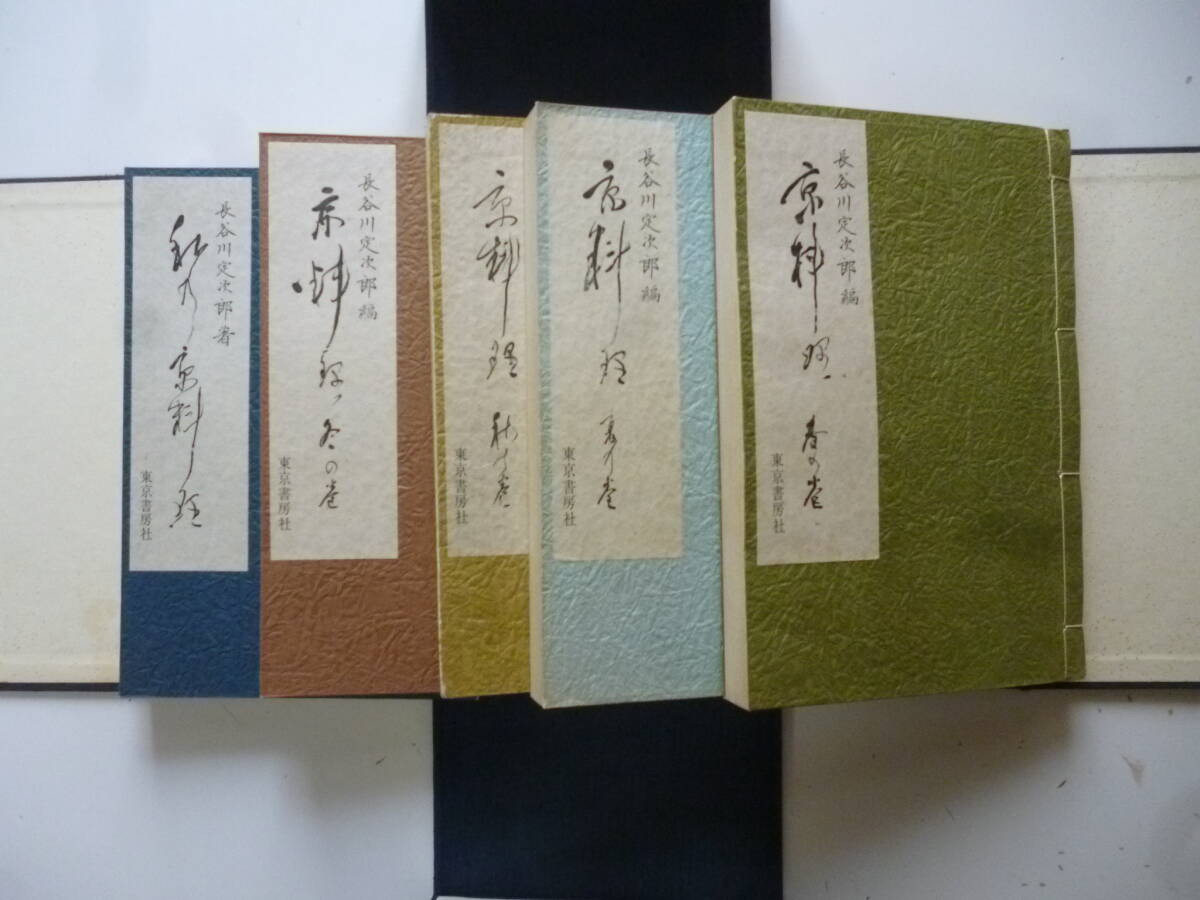 長谷川定次郎編
京料理 春の巻
東京書房社
長谷川定次郎編
京料理 夏の巻
東京書房社
長谷川定次郎編
京料理 秋の巻
東京書房社
長谷川定次郎編
京料理 冬の巻
東京書房社
長谷川定次郎著
私の京料理
東京書房社